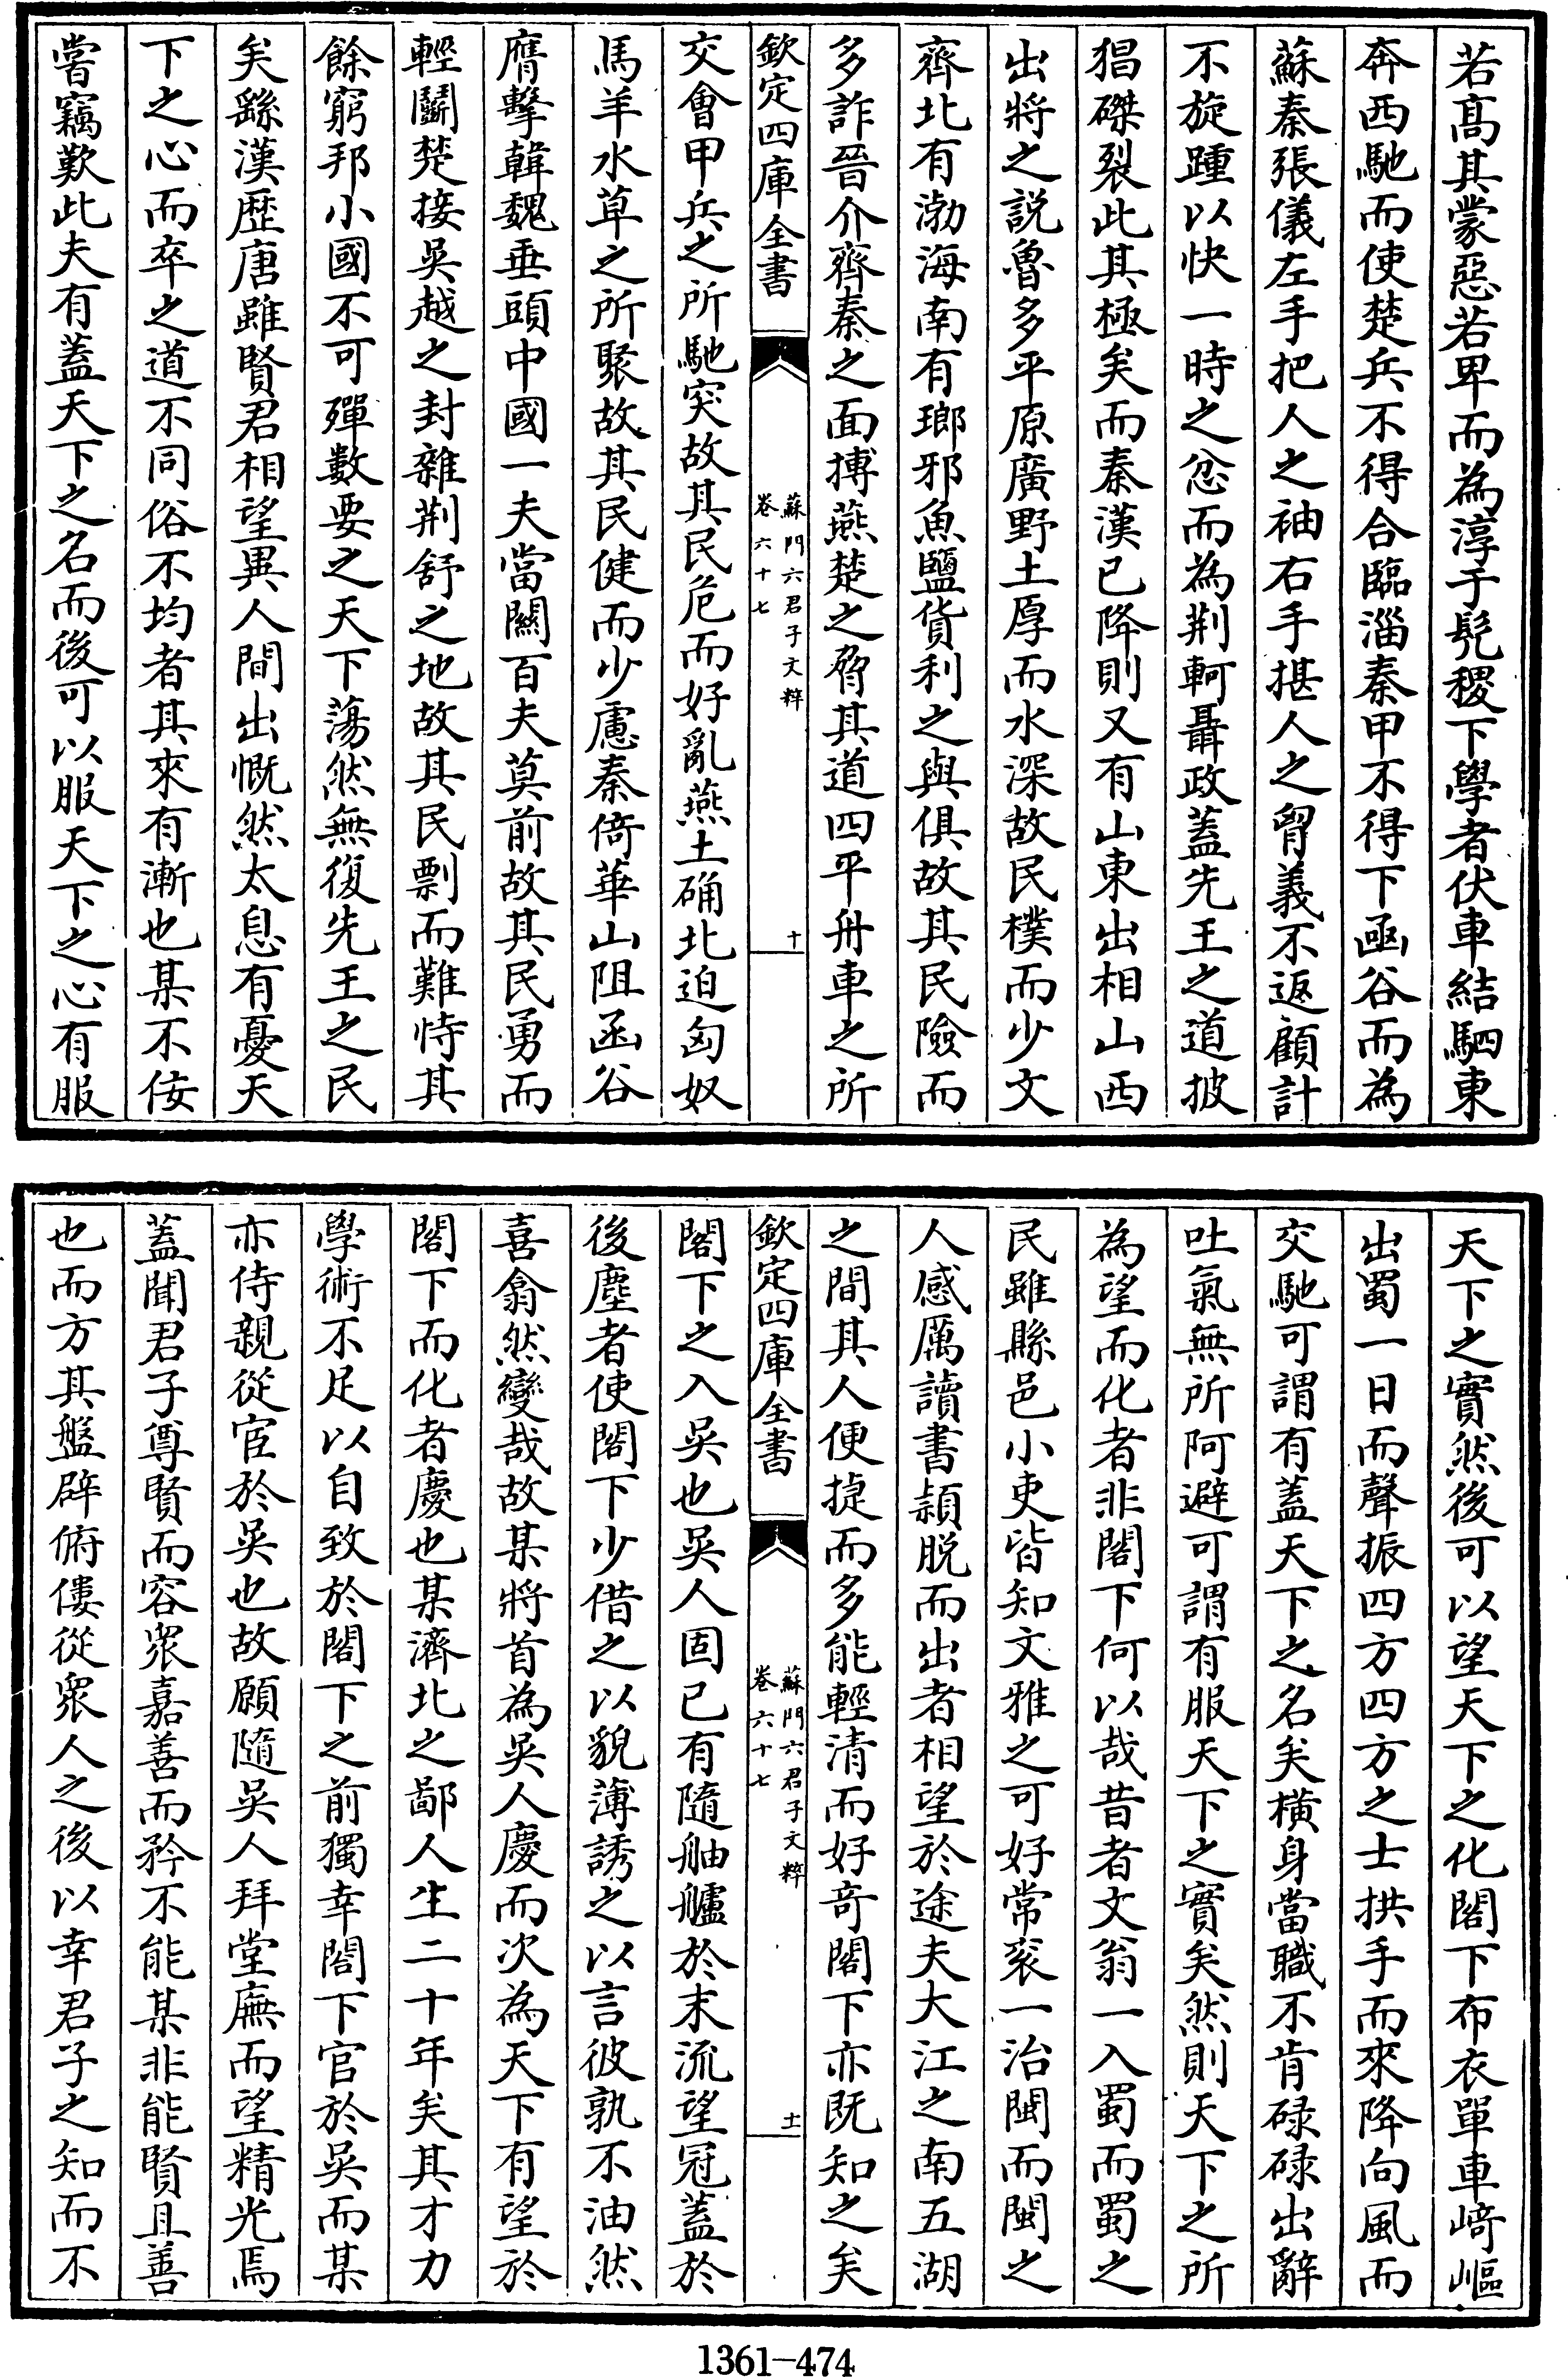 若髙其蒙惡若卑而為淳于髠稷下學者伏車結駟東
奔西馳而使楚兵不得合臨淄秦甲不得下亟谷而為
蘇秦張儀左手把人之袖右手揕人之胷義不返顧計
不旋踵以快一時之忿而為荆軻聶政蓋先王之道披
猖磔裂此其極矣而秦漢已降則又有山東出相山西
出將之説魯多平原廣野土厚而水深故民樸而少文
齊北有渤海南有瑯邪魚鹽貨利之與俱故其民險而
多詐晉介齊秦之面搏燕楚之脅其道四平舟車之所
欽定四庫全書
蘇門六君子文粹
卷六十七
十
交會甲兵之所馳突故其民危而好亂燕土确北迫匈奴
馬羊水草之所聚故其民健而少慮秦倚華山阻函谷
膺擊韓魏垂頭中國一夫當關百夫莫前故其民勇而
輕鬬楚接吳越之封雜荆舒之地故其民剽而難恃其
餘窮邦小國不可殫數要之天下蕩然無復先王之民
矣繇漢歴唐雖賢君相望異人間出慨然太息有憂天
下之心而卒之道不同俗不均者其來有漸也某不佞
嘗竊歎此夫有蓋天下之名而後可以服天下之心有服
天下之實然後可以望天下之化閣下布衣單車崎嶇
出蜀一日而聲振四方四方之士拱手而來降向風而
交馳可謂有蓋天下之名矣横身當職不肯碌碌出辭
吐氣無所阿避可謂有服天下之實矣然則天下之所
為望而化者非閣下何以哉昔者文翁一入蜀而蜀之
民雖縣邑小吏皆知文雅之可好常衮一治閩而閩之
人感厲讀書頴脱而出者相望於途夫大江之南五湖
之間其人便捷而多能輕清而好奇閣下亦既知之矣
欽定四庫全書
蘇門六君子文粹
卷六十七
十一
閣下之入吳也吳人固已有隨舳艫於末流望冠蓋於
後塵者使閣下少借之以貌薄誘之以言彼孰不油然
喜翕然變哉故某將首為吳人慶而次為天下有望於
閣下而化者慶也某濟北之鄙人生二十年矣其才力
學術不足以自致於閣下之前獨幸閣下官於吳而某
亦侍親從宦於吳也故願隨吳人拜堂廡而望精光焉
蓋聞君子尊賢而容衆嘉善而矜不能某非能賢且善
也而方其盤辟俯僂從衆人之後以幸君子之知而不
1361-474